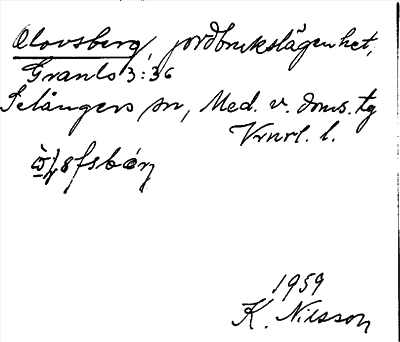 Olovsberg, jordbrukslägenhet,
Granlo 3:36
Selångers sn, Med. v. doms. tg
Vrnrl. l.
1959
K. Nilsson